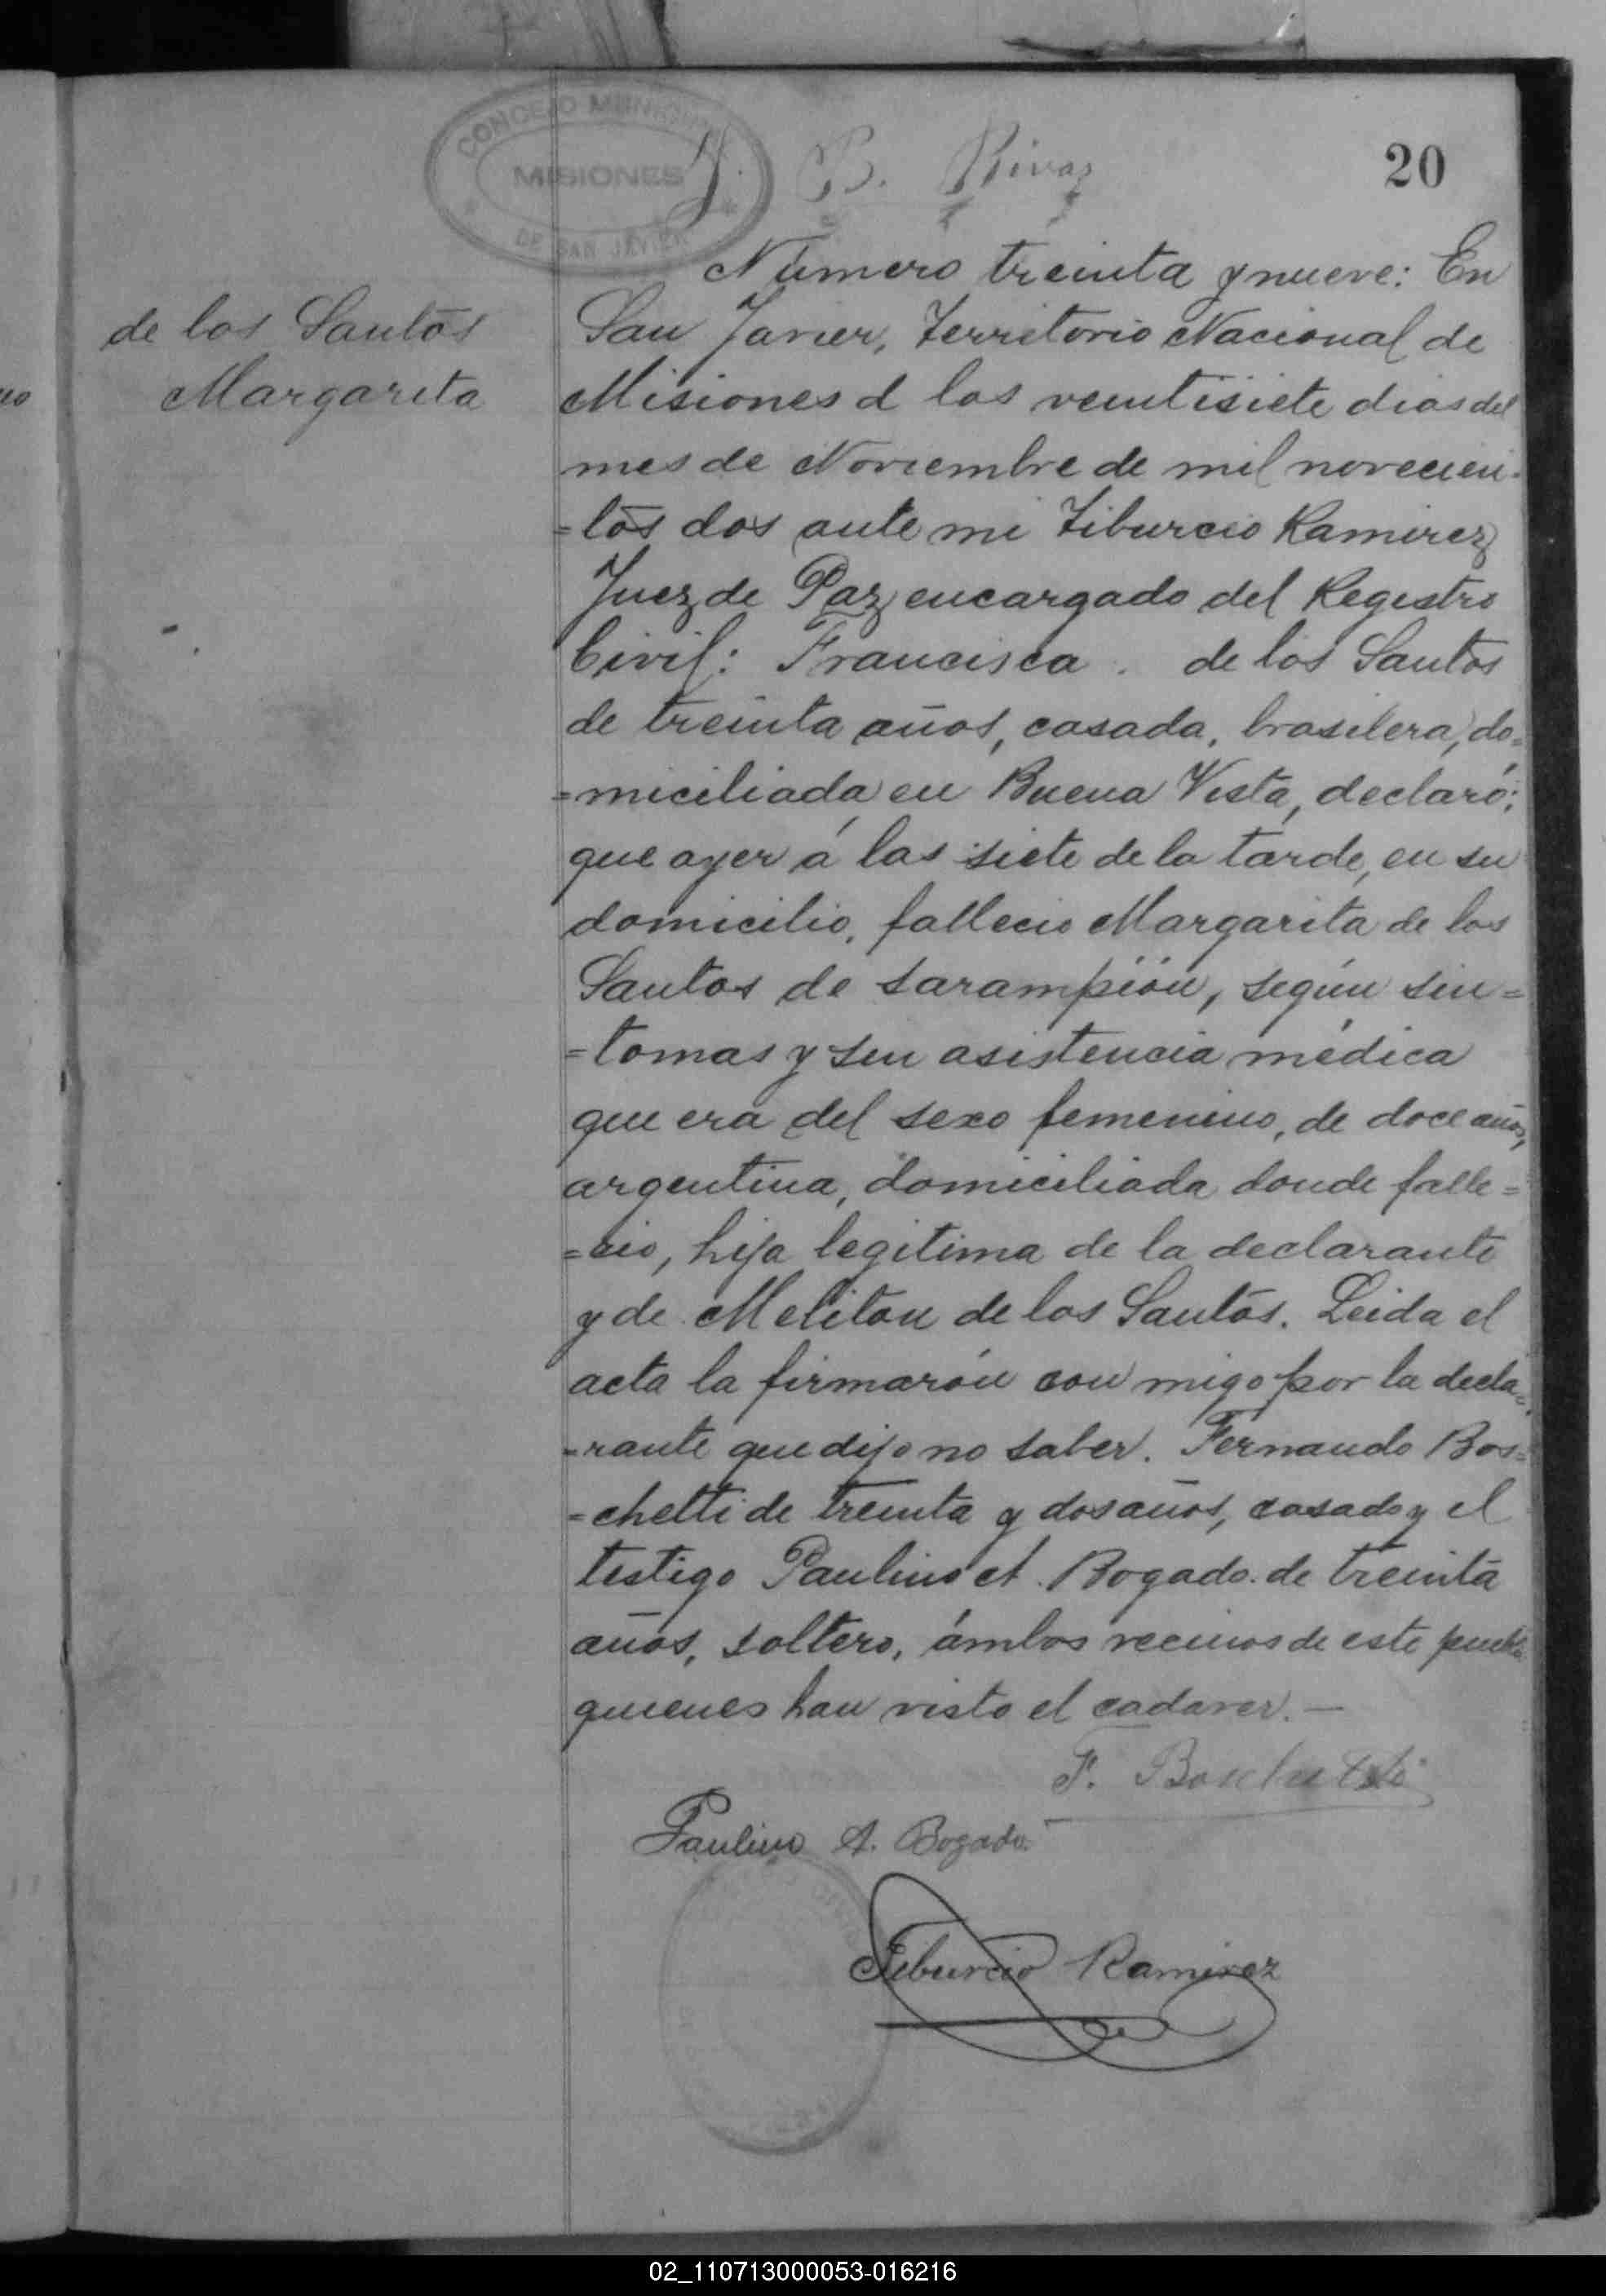 CONCEJO MUNICIPAL
MISIONES
DE SAN JAVIER
J. B. Rivas
20
de los Santos
Margarita
Número treinta y nueve: En
San Javier, Territorio Nacional de
Misiones á los veintisiete dias del
mes de Noviembre de mil novecien-
=tos dos ante mi Tiburcio Ramirez
Juez de Paz encargado del Registro
Civil: Francisca . de los Santos
de treinta años, casada, brasilera, do=
=miciliada en Buena Vista, declaró:
que ayer á las siete de la tarde, en su
domicilio, fallecio Margarita de los
Santos de sarampión, según sin=
=tomas y sin asistencia médica
que era del sexo femenino, de doce años,
argentina, domiciliada donde falle=
=cio, hija legitima de la declarante
y de Meliton de los Santos. Leida el
acta la firmarón con migo por la decla=
=rante que dijo no saber. Fernando Bos=
=chetti de treinta y dos años, casado y el
testigo Paulino A. Bogado de treinta
años, soltero, ámbos vecinos de este pueblo
quienes han visto el cadaver.—
F. Boschetti
Paulino A. Bogado
Tiburcio Ramirez
02_110713000053-016216